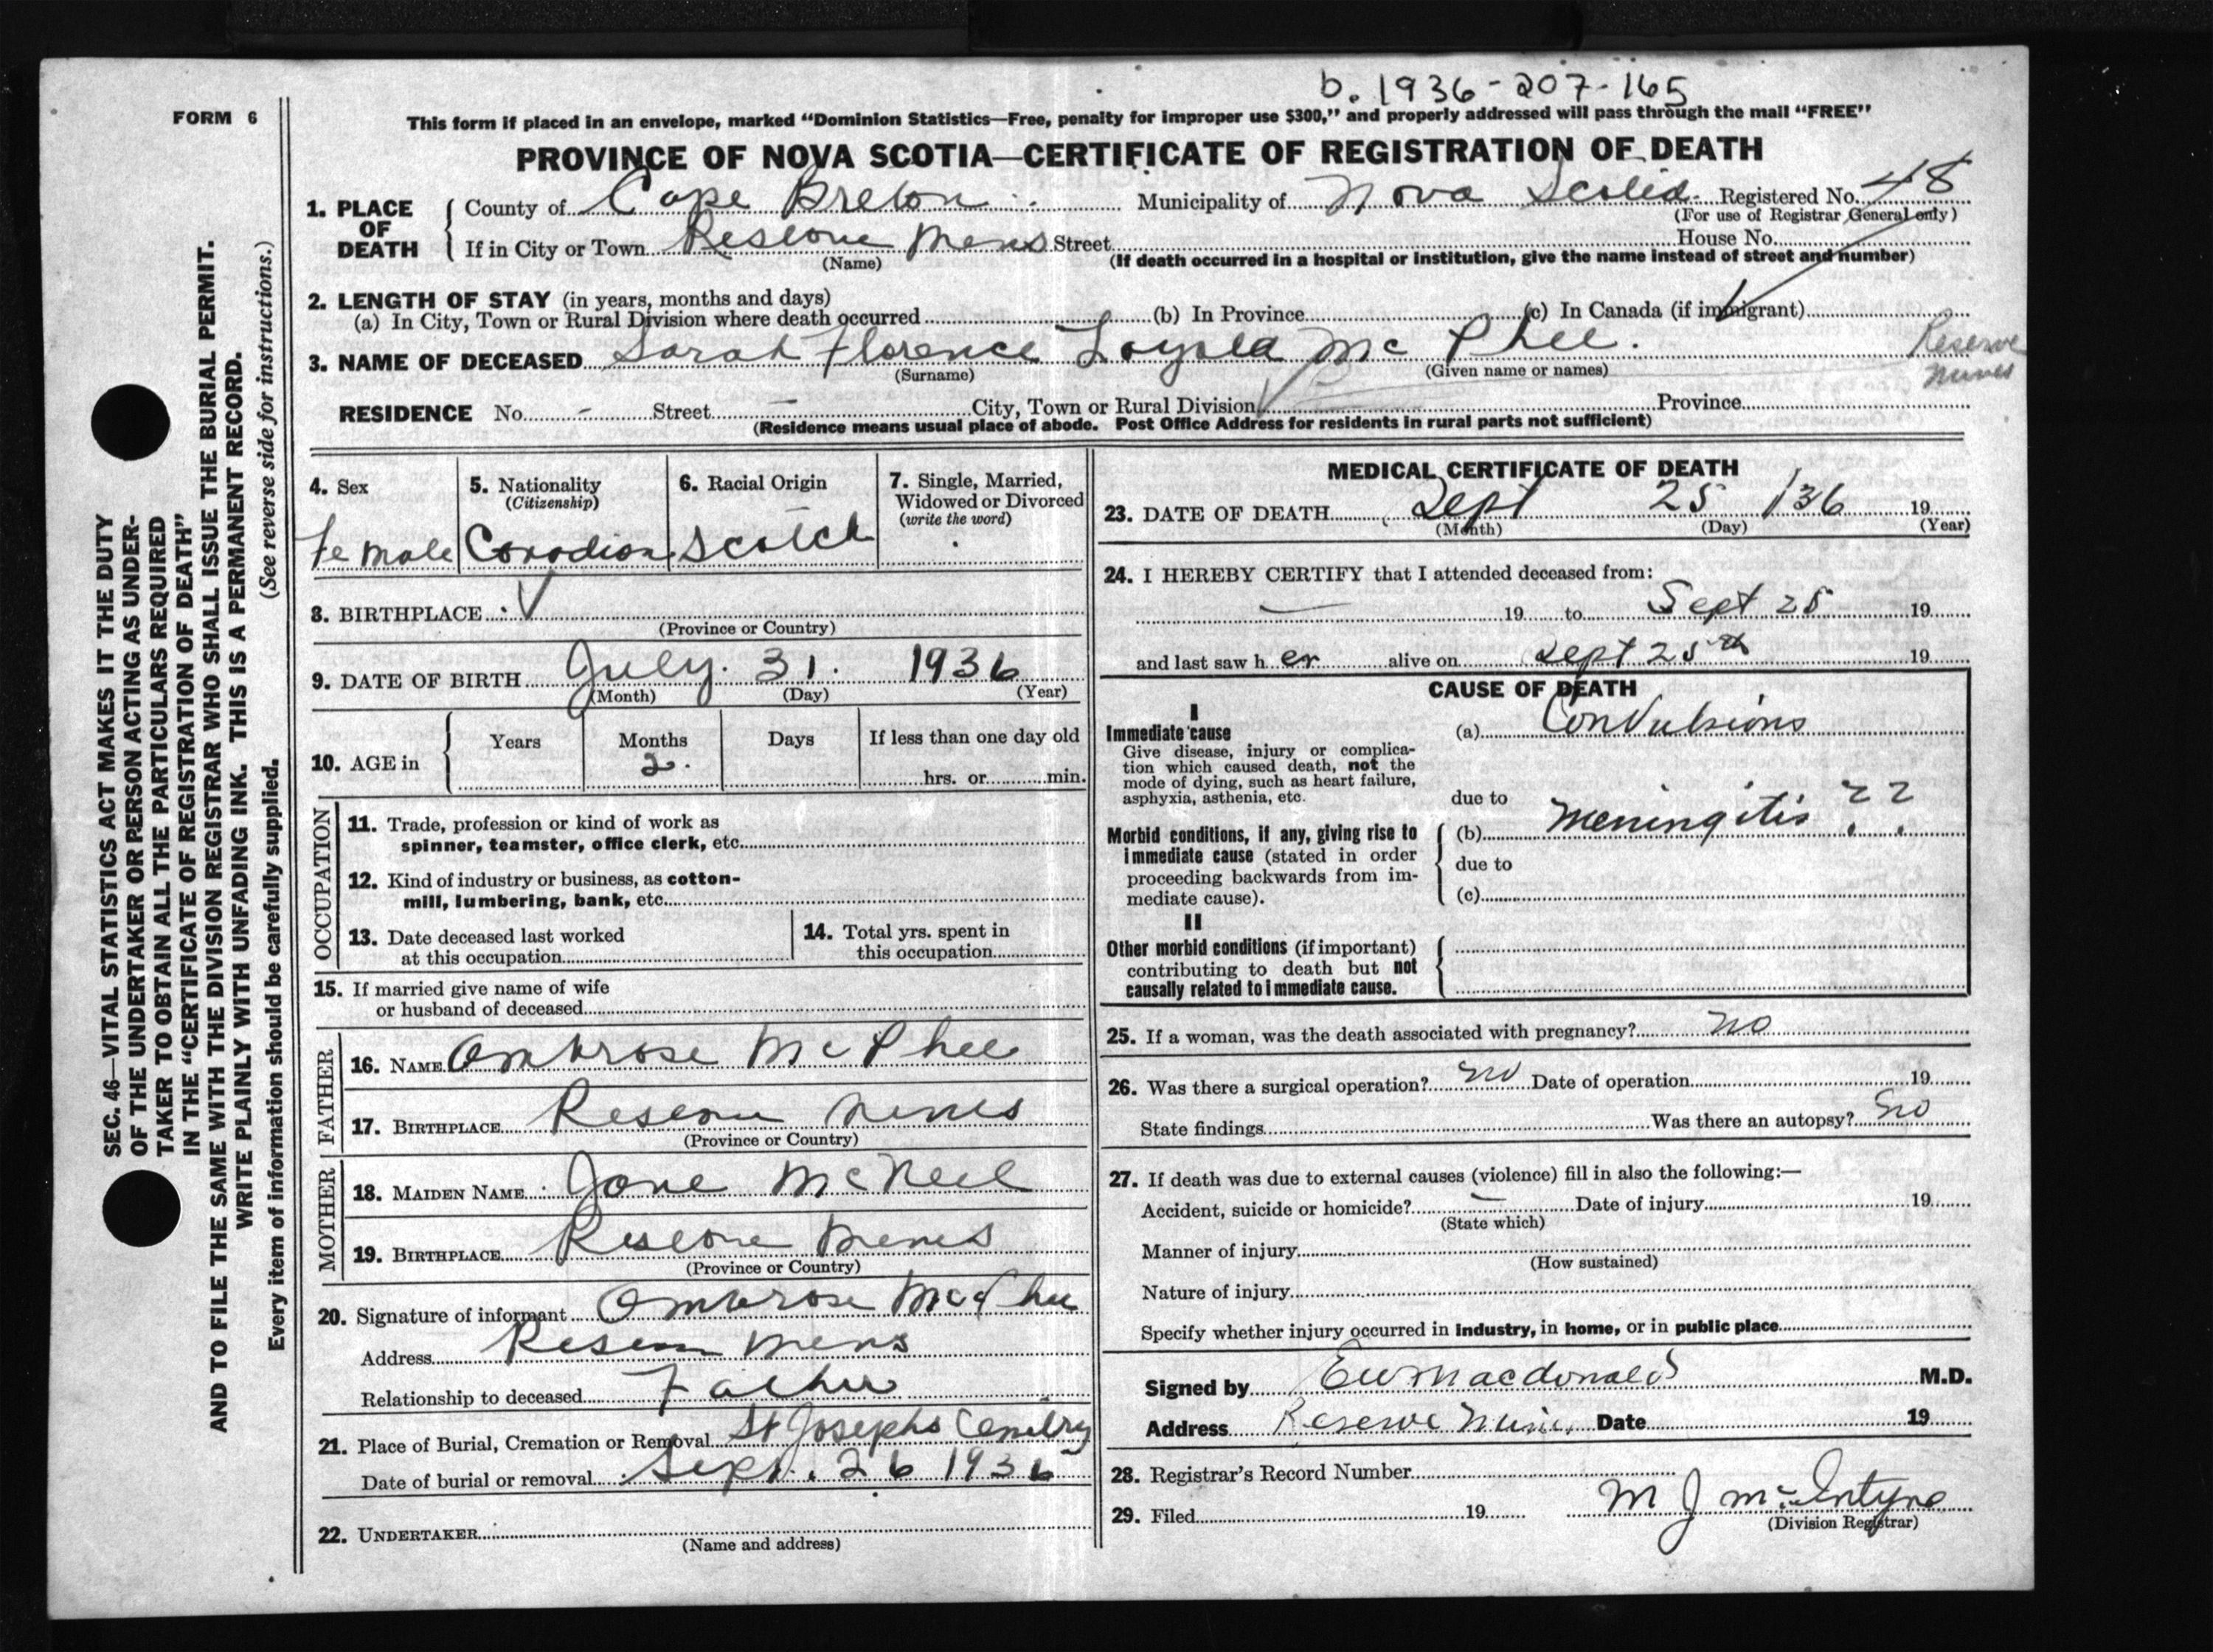 b. 1936-207-165
FORM 6
This form if placed in an envelope, marked “Dominion Statistics—Free, penalty for improper use $300,” and properly addressed will pass through the mail “FREE”
PROVINCE OF NOVA SCOTIA—CERTIFICATE OF REGISTRATION OF DEATH
1. PLACE OF DEATH { County of Cape Breton Municipality of Nova Scotia Registered No. 48
(For use of Registrar General only)
If in City or Town Street House No.
(Name) (If death occurred in a hospital or institution, give the name instead of street and number)
2. LENGTH OF STAY (in years, months and days)
(a) In City, Town or Rural Division where death occurred (b) In Province (c) In Canada (if immigrant)
3. NAME OF DECEASED Sarah Florence Loyola Mc Phee.
(Surname) (Given name or names)
Reserve
Mines
RESIDENCE No. - Street - City, Town or Rural Division Province
(Residence means usual place of abode. Post Office Address for residents in rural parts not sufficient)
SEC. 46—VITAL STATISTICS ACT MAKES IT THE DUTY
OF THE UNDERTAKER OR PERSON ACTING AS UNDER-
TAKER TO OBTAIN ALL THE PARTICULARS REQUIRED
IN THE “CERTIFICATE OF REGISTRATION OF DEATH”
AND TO FILE THE SAME WITH THE DIVISION REGISTRAR WHO SHALL ISSUE THE BURIAL PERMIT.
WRITE PLAINLY WITH UNFADING INK. THIS IS A PERMANENT RECORD.
(See reverse side for instructions.)
Every item of information should be carefully supplied.
4. Sex
Female
5. Nationality
(Citizenship)
Canadian
6. Racial Origin
Scotch
7. Single, Married,
Widowed or Divorced
(write the word)
8. BIRTHPLACE
(Province or Country)
9. DATE OF BIRTH July. 31. 1936
(Month) (Day) (Year)
10. AGE in { Years Months Days If less than one day old
2. hrs. or min.
OCCUPATION
11. Trade, profession or kind of work as
spinner, teamster, office clerk, etc.
12. Kind of industry or business, as cotton-
mill, lumbering, bank, etc.
13. Date deceased last worked
at this occupation
14. Total yrs. spent in
this occupation
15. If married give name of wife
or husband of deceased
FATHER
16. NAME Ambrose McPhee
17. BIRTHPLACE Reserve Mines
(Province or Country)
MOTHER
18. MAIDEN NAME Jane McNeil
19. BIRTHPLACE Reserve Mines
(Province or Country)
20. Signature of informant Ambrose McPhee
Address Reserve Mines
Relationship to deceased Father
21. Place of Burial, Cremation or Removal St Josephs Cemetry
Date of burial or removal Sept. 26 1936
22. UNDERTAKER
(Name and address)
MEDICAL CERTIFICATE OF DEATH
23. DATE OF DEATH Sept 25 /36 19
(Month) (Day) (Year)
24. I HEREBY CERTIFY that I attended deceased from:
— 19 to Sept 25 19
and last saw h er alive on Sept 25th 19
CAUSE OF DEATH
I
Immediate cause
Give disease, injury or complica-
tion which caused death, not the
mode of dying, such as heart failure,
asphyxia, asthenia, etc.
(a) Convulsions
due to
Morbid conditions, if any, giving rise to
immediate cause (stated in order
proceeding backwards from im-
mediate cause).
(b) Meningitis ? ?
due to
(c)
II
Other morbid conditions (if important)
contributing to death but not
causally related to immediate cause.
25. If a woman, was the death associated with pregnancy? no
26. Was there a surgical operation? no Date of operation 19
State findings Was there an autopsy? no
27. If death was due to external causes (violence) fill in also the following:—
Accident, suicide or homicide? — Date of injury 19
(State which)
Manner of injury
(How sustained)
Nature of injury
Specify whether injury occurred in industry, in home, or in public place
Signed by Macdonald M.D.
Address Reserve Mines Date 19
28. Registrar's Record Number
29. Filed 19 M J McIntyre
(Division Registrar)